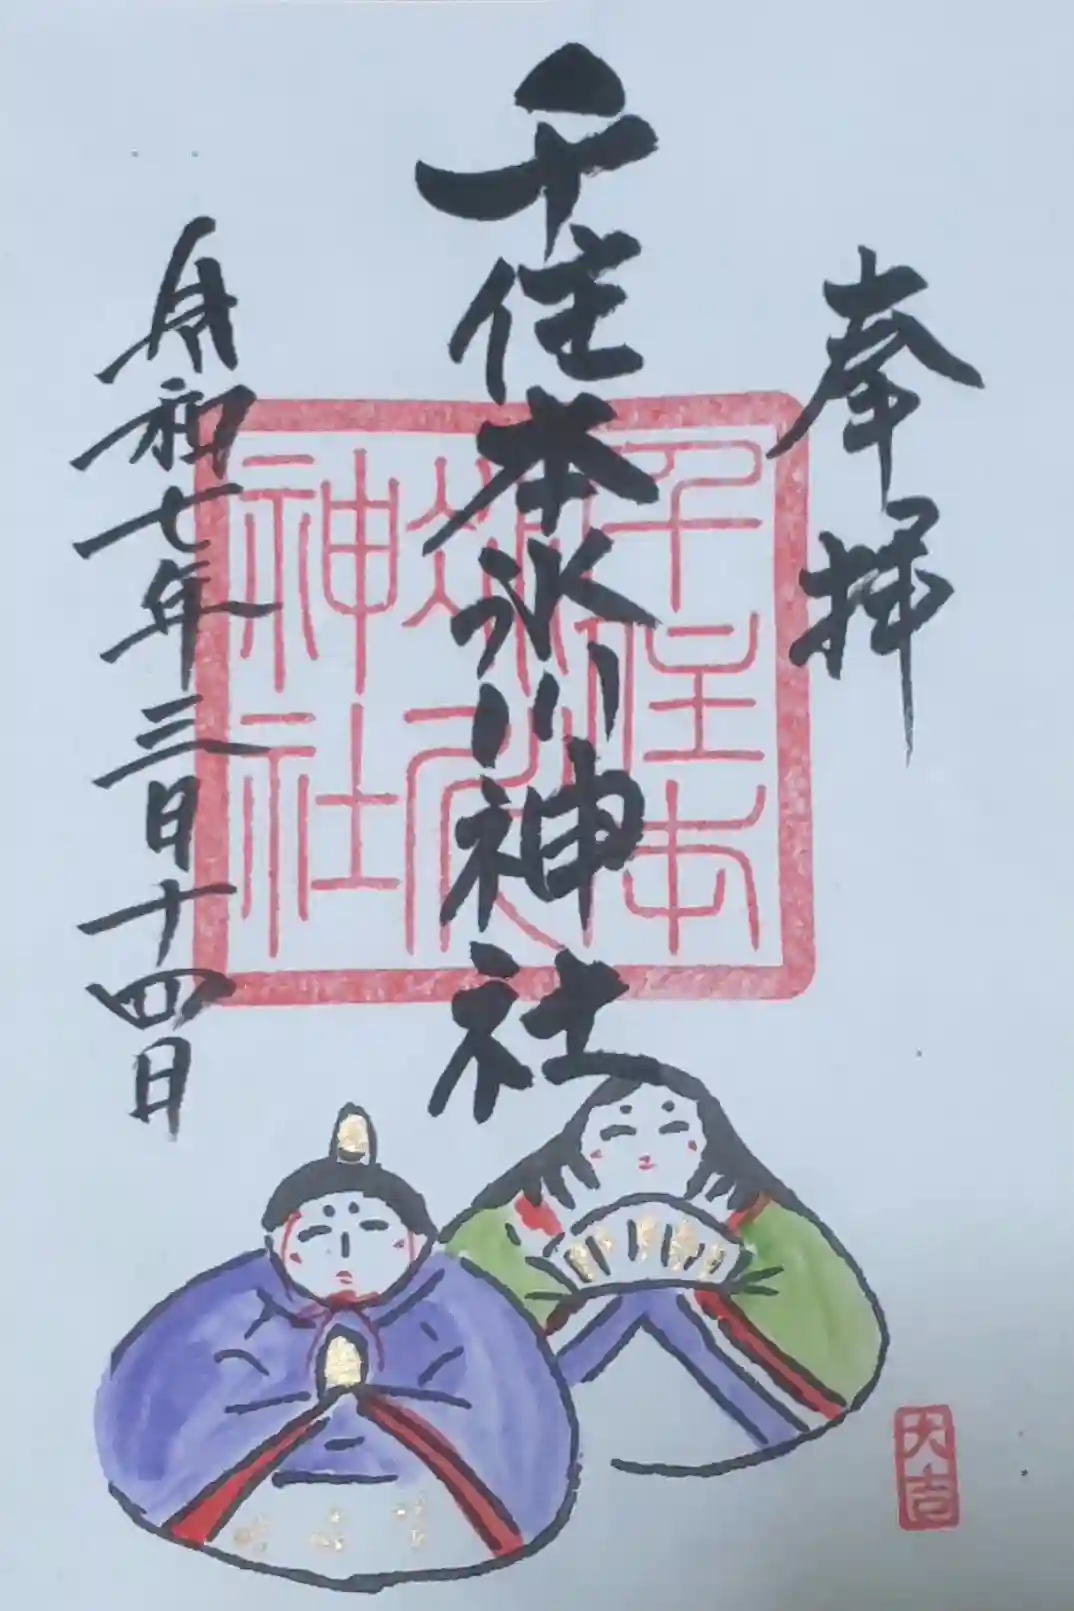 奉拝
千住本氷川神社
令和七年三月十四日
千住本
神社
大吉